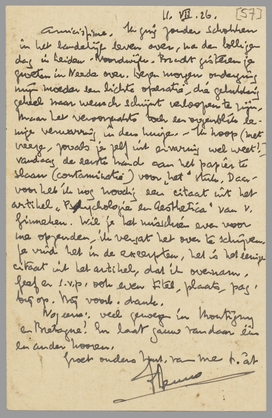 11. VII. 26. [57]
Amicissime. Ik ging zonder schokken
in het landelijk leven over, na den lolligen
dag in Leiden-Noordwijk. Bracht gisteren je
groeten in Neede over. Dezen morgen onderging
mijn moeder een lichte operatie, die gelukkig
geheel naar wensch schijnt verloopen te zijn,
Maar het veroorzaakte toch een oogenblik
verwarring in dens huize. Ik hoop (met
vreeze, zooals je zelf uit ervaring wel weet!)
vandaag de eerste hand aan het papier te
slaan (contaminatie) voor "het" stuk. Daar-
voor heb ik nog noodig een citaat uit het
artikel, Psychologie en Aesthetica van v.
Ginneken. Wil je het misschien even voor
me opzenden, ik vergat het over te schrijven.
Je vindt het in de excerpten, het is het eenige
citaat uit het artikel, dat ik overnam.
Geef er s.v.p. ook even titel, plaats, pag.
bij op. Bij voorb. dank.
Nogeens: veel genoegen in Montigny
en Bretagne! En laat gauw vandaar eens
en ander hooren.
Groet ouders van me